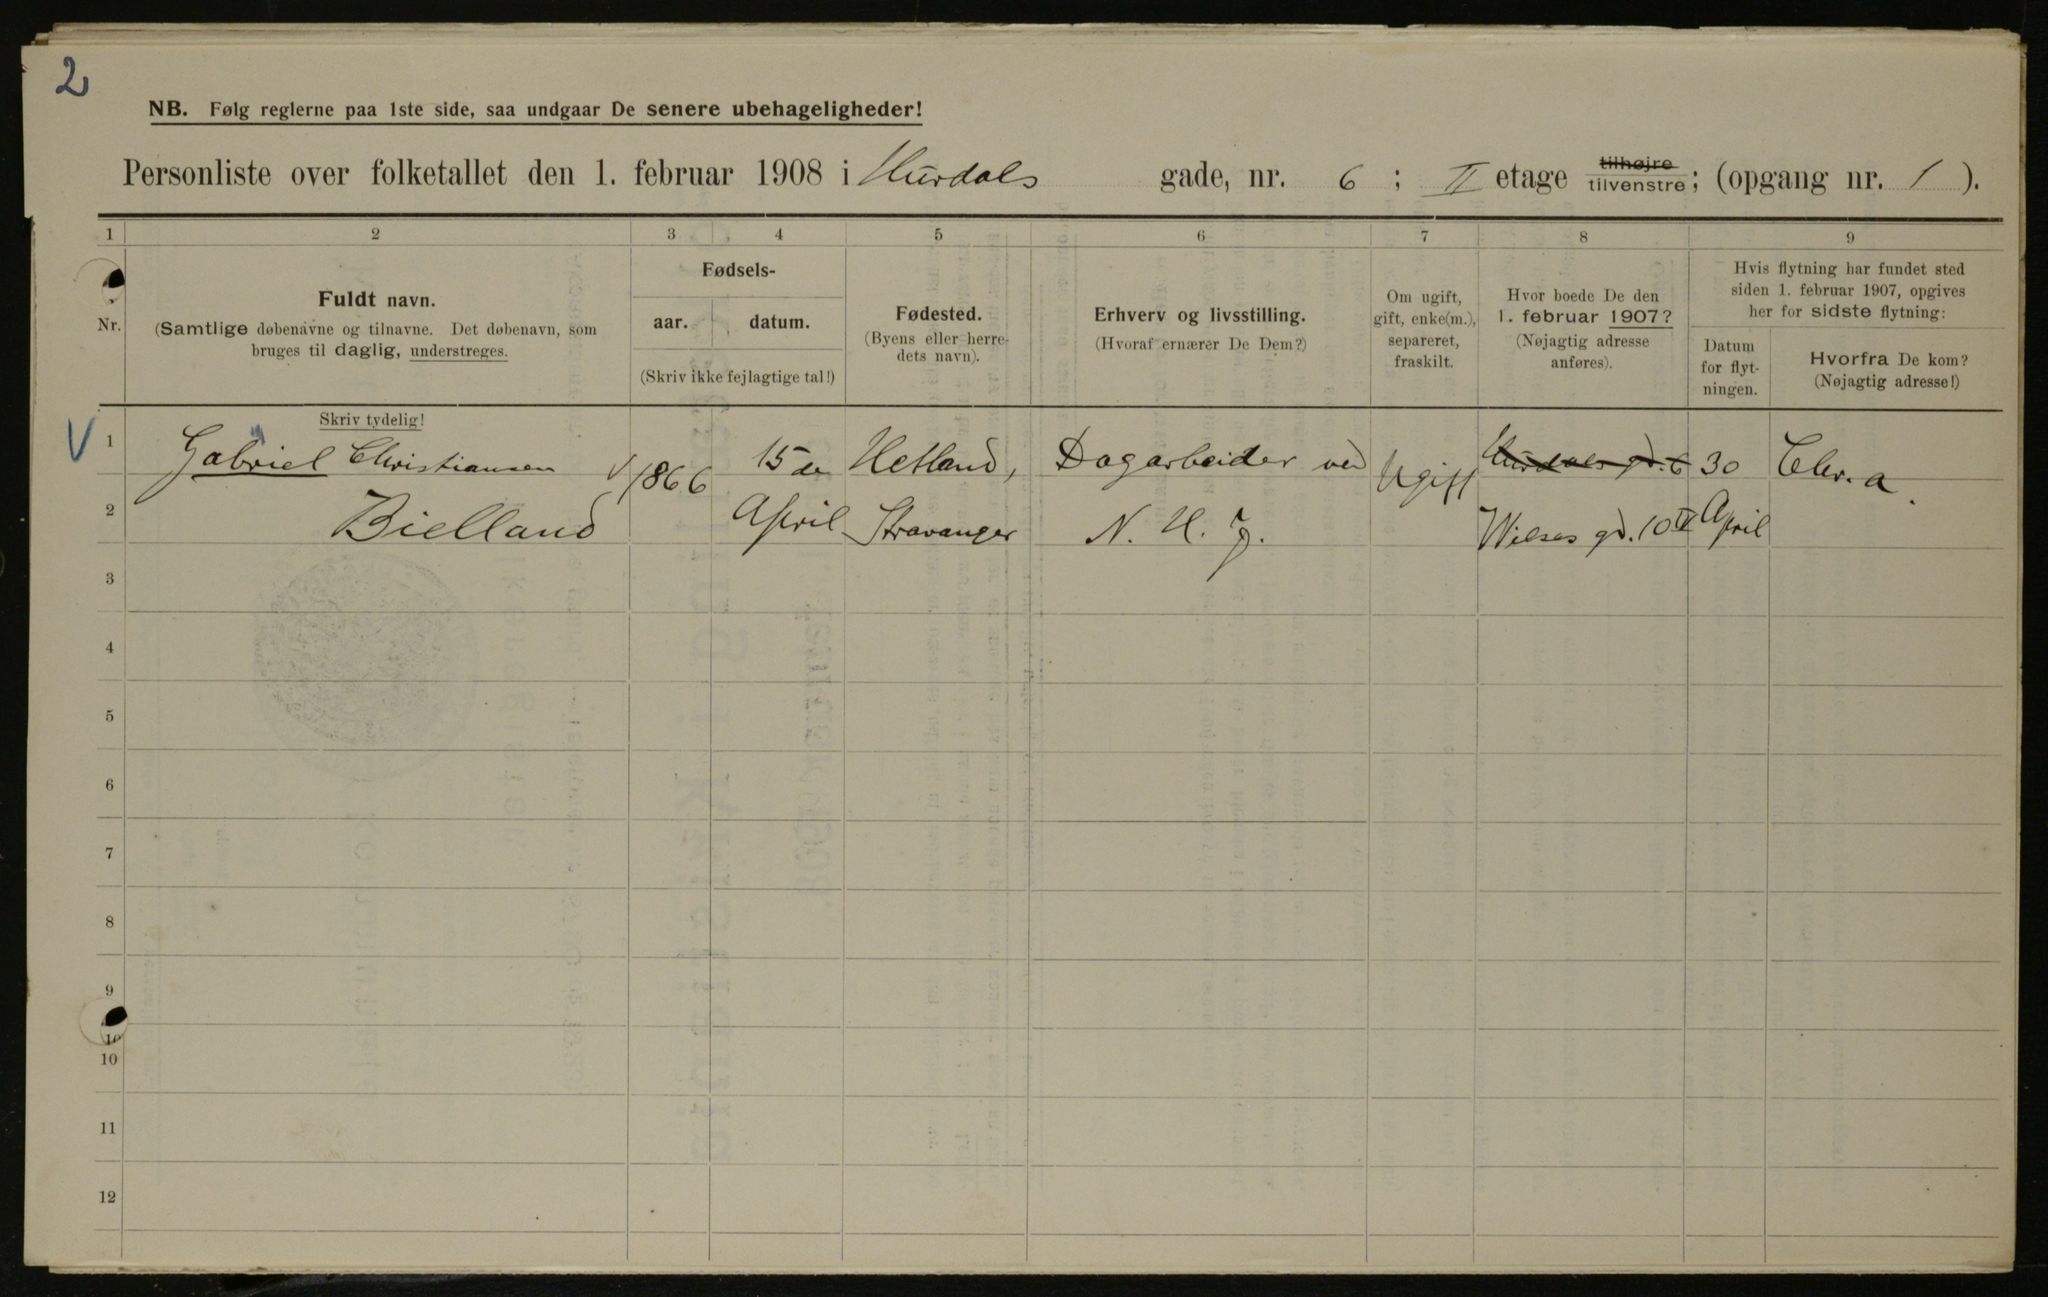 2
NB. Følg reglerne paa 1ste side, saa undgaar De senere ubehageligheder!
Personliste over folketallet den 1. februar 1908 i Hurdals gade, nr. 6; II etage tilhøjre tilvenstre; (opgang nr. 1).
1 2 3 4 5 6 7 8 9
Nr.
Fuldt navn.
(Samtlige døbenavne og tilnavne. Det døbenavn, som
bruges til daglig, understreges.
Skriv tydelig!
Fødsels-
aar. datum.
(Skriv ikke fejlagtige tal!)
Fødested.
(Byens eller herre-
dets navn).
Erhverv og livsstilling.
(Hvoraf ernærer De Dem?)
Om ugift,
gift, enke(m.),
separeret,
fraskilt.
Hvor boede De den
1. februar 1907?
(Nøjagtig adresse
anføres).
Hvis flytning har fundet sted
siden 1. februar 1907, opgives
her for sidste flytning:
Datum
for flyt-
ningen.
Hvorfra De kom?
(Nøjagtig adresse!)
V 1 Gabriel Christiansen 1866 15de Hetland, Dagarbeider ved Ugift Hurdals gd. 6 30 Chr.a.
2 Bielland April Stavanger N. H. J. Wilses gd. 10 II April
3
4
5
6
7
8
9
10
10
11
12